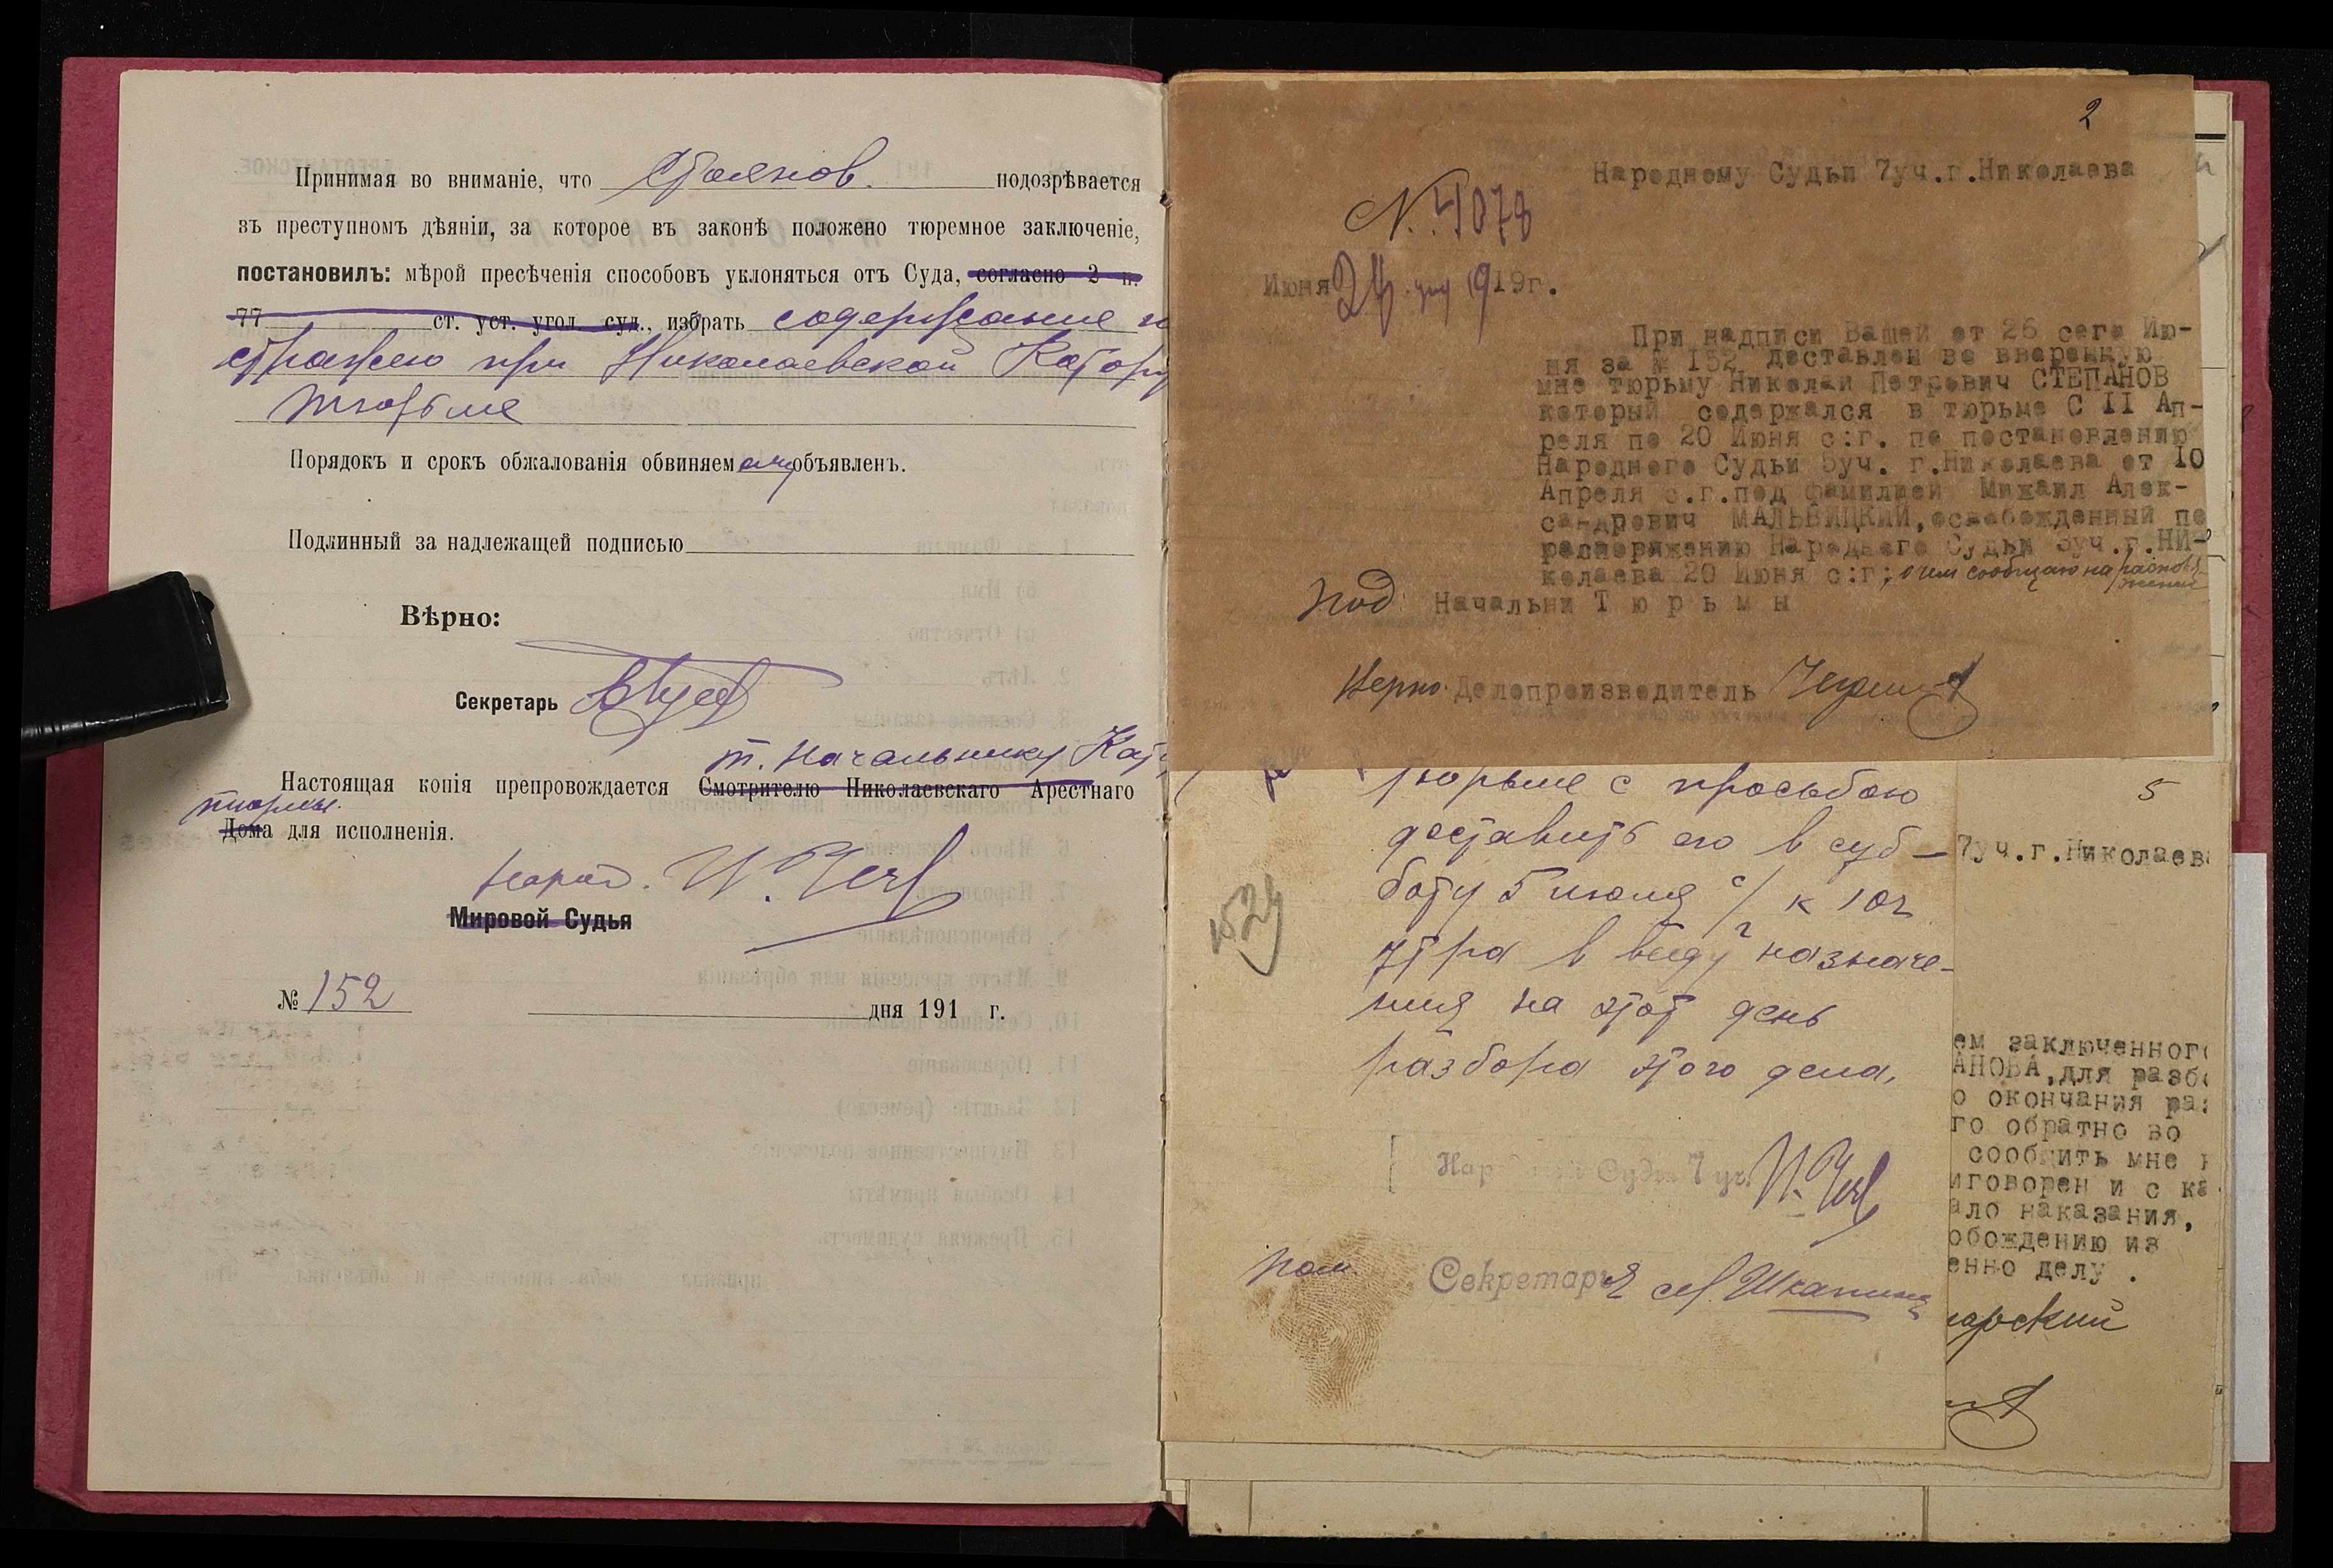 Принимая во вниманіе, что Степанов. подозрѣвается
въ преступномъ дѣяніи, за которое въ законѣ положено тюремное заключеніе,
постановилъ: мѣрой пресѣченія способовъ уклоняться отъ Суда, согласно 2 п.
77 ст. уст. угол. суд., избрать содержание
стражею при Николаевской Каторж
тюрьме
Порядокъ и срокъ обжалованія обвиняемому объявленъ.
Подлинный за надлежащей подписью
Вѣрно:
Секретарь
т. Начальнику Кат
Настоящая копія препровождается Смотрителю Николаевскаго Арестнаго
тюрмы.
Дома для исполненія.
Народ.
Мировой Судья
№ 152 дня 191 г.
2
Народному Судьи 7уч.г.Николаева
N. 4078
Июня 19г.
При надписи Вашей от 26 сего Ию-
ня за № 152 доставлен во вверенную
мне тюрьму Николай Петрович СТЕПАНОВ
который содержался в тюрьме С II Ап-
реля по 20 Июня с:г. по постановлению
Народного Судьи 5уч. г.Николаева от 10
Апреля с.г.под фамилией Михаил Алек-
сандрович МАЛЬВИЦКИЙ,освобожденный по
распоряжению Народнего Судьи 3уч.г.НИ-
колаева 20 Июня с:г; о чем сообщаю на распоря
жение
Под: Начальни Тюрьмы
Верно: Делопроизводитель
тюрьме с просьбою
доставить его в суб-
боту 5 июля с/г к 10ч
утра в виду назначе-
ния на этот день
разбора этого дела,
1524
Народный Судья 7 уч.
пом. Секретаря М. Шкапина
5
7уч.г.Николаев
ем заключенног
АНОВА,для разб
о окончания ра
го обратно во
сообщить мне
иговорен и с ка
ало наказания,
обождению из
енно делу .
арский